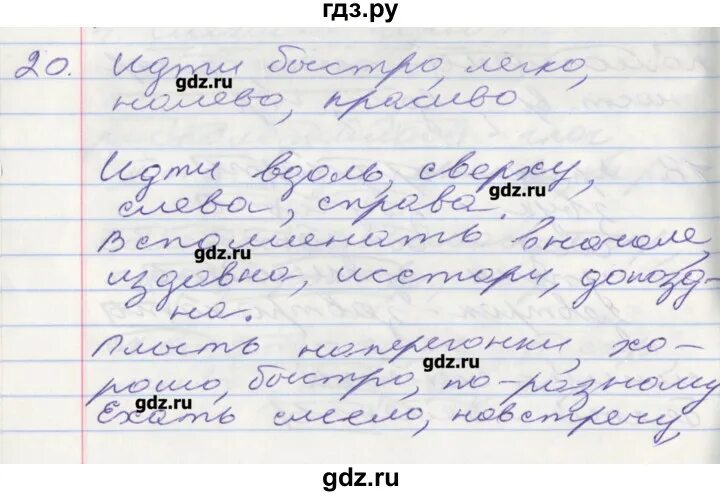 гдз.ру
20. Идти быстро, легко,
gdz.ru
налево, красиво
Идти вдоль, сверху,
gdz.ru
слева, справа.
Вспоминать вначале,
gdz.ru
издавна, исстари, допозд-
на.
Плыть наперегонки, хо-
gdz.ru
рошо, быстро, по-разному
gdz.ru
Ехать смело, навстречу,
gdz.ru